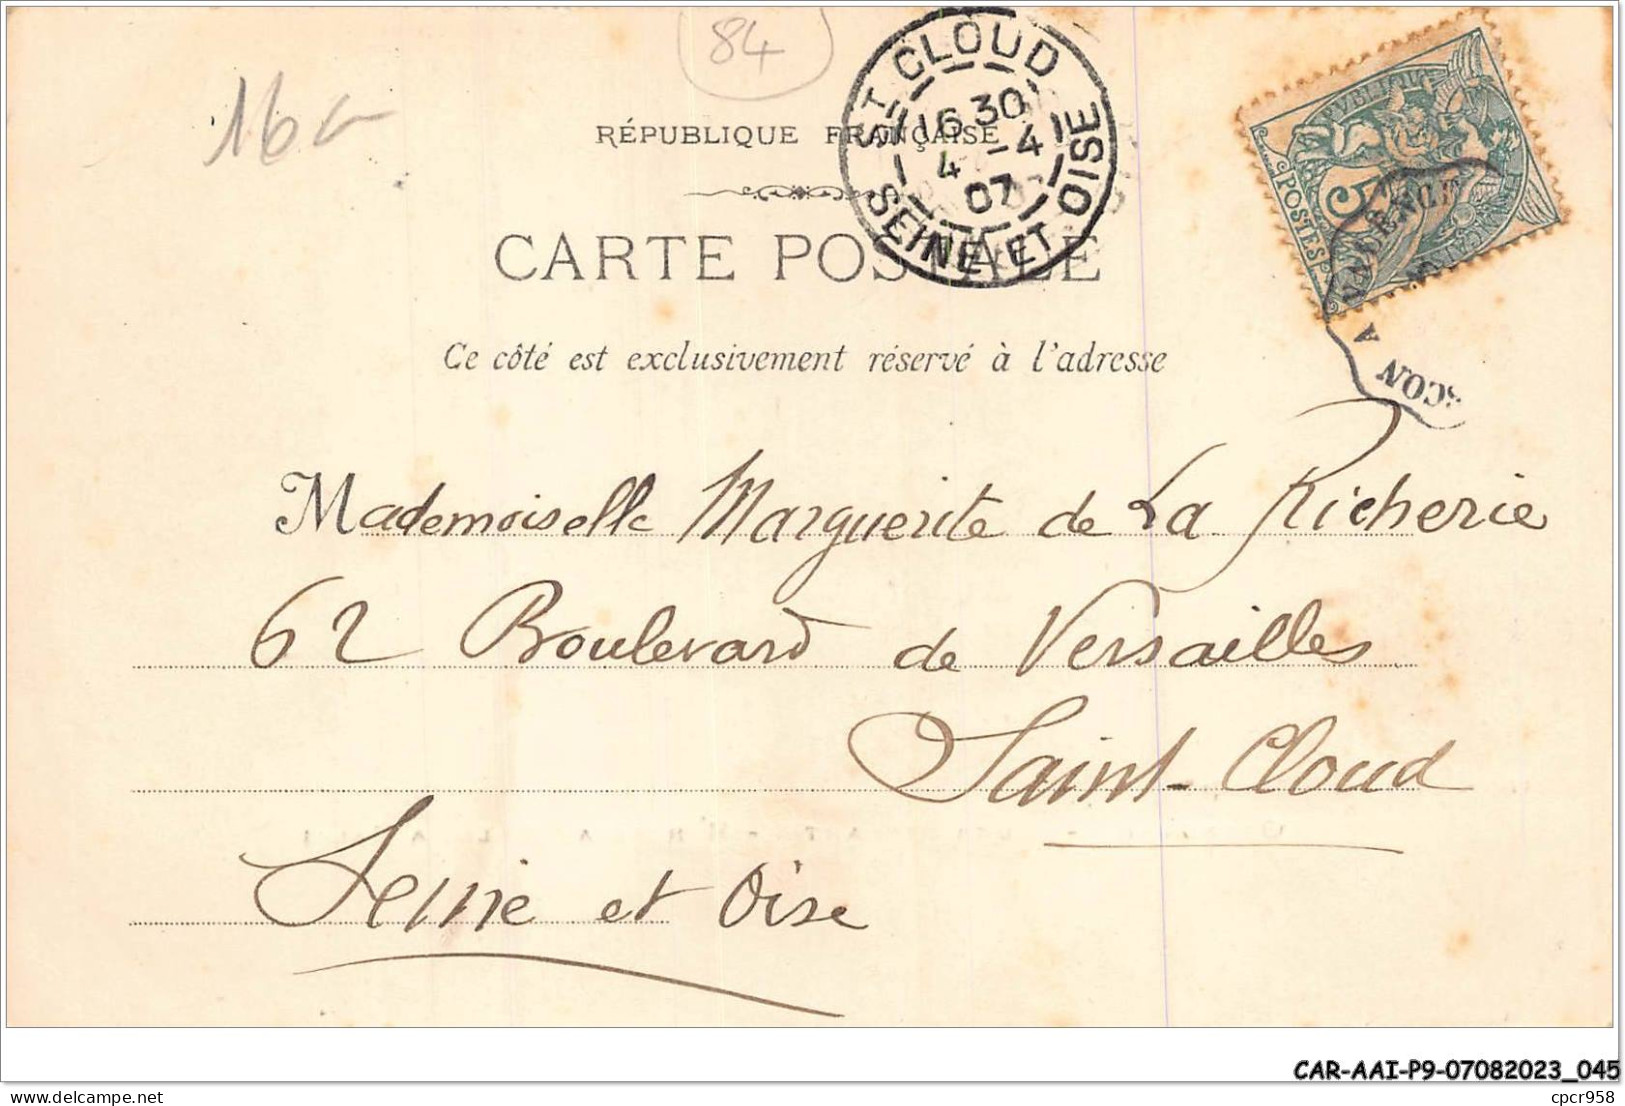 84
16
RÉPUBLIQUE FRANÇAISE
ST CLOUD
16 30
4 -4
07
SEINE ET OISE
RÉPUBLIQUE
POSTES
5
A
CARTE POSTALE
Ce côté est exclusivement réservé à l'adresse
Mademoiselle Marguerite de La Richerie
62 Boulevard de Versailles
Saint-Cloud
Seine et Oise
CAR-AAI-P9-07082023_045
delcampe.net
cpcr958